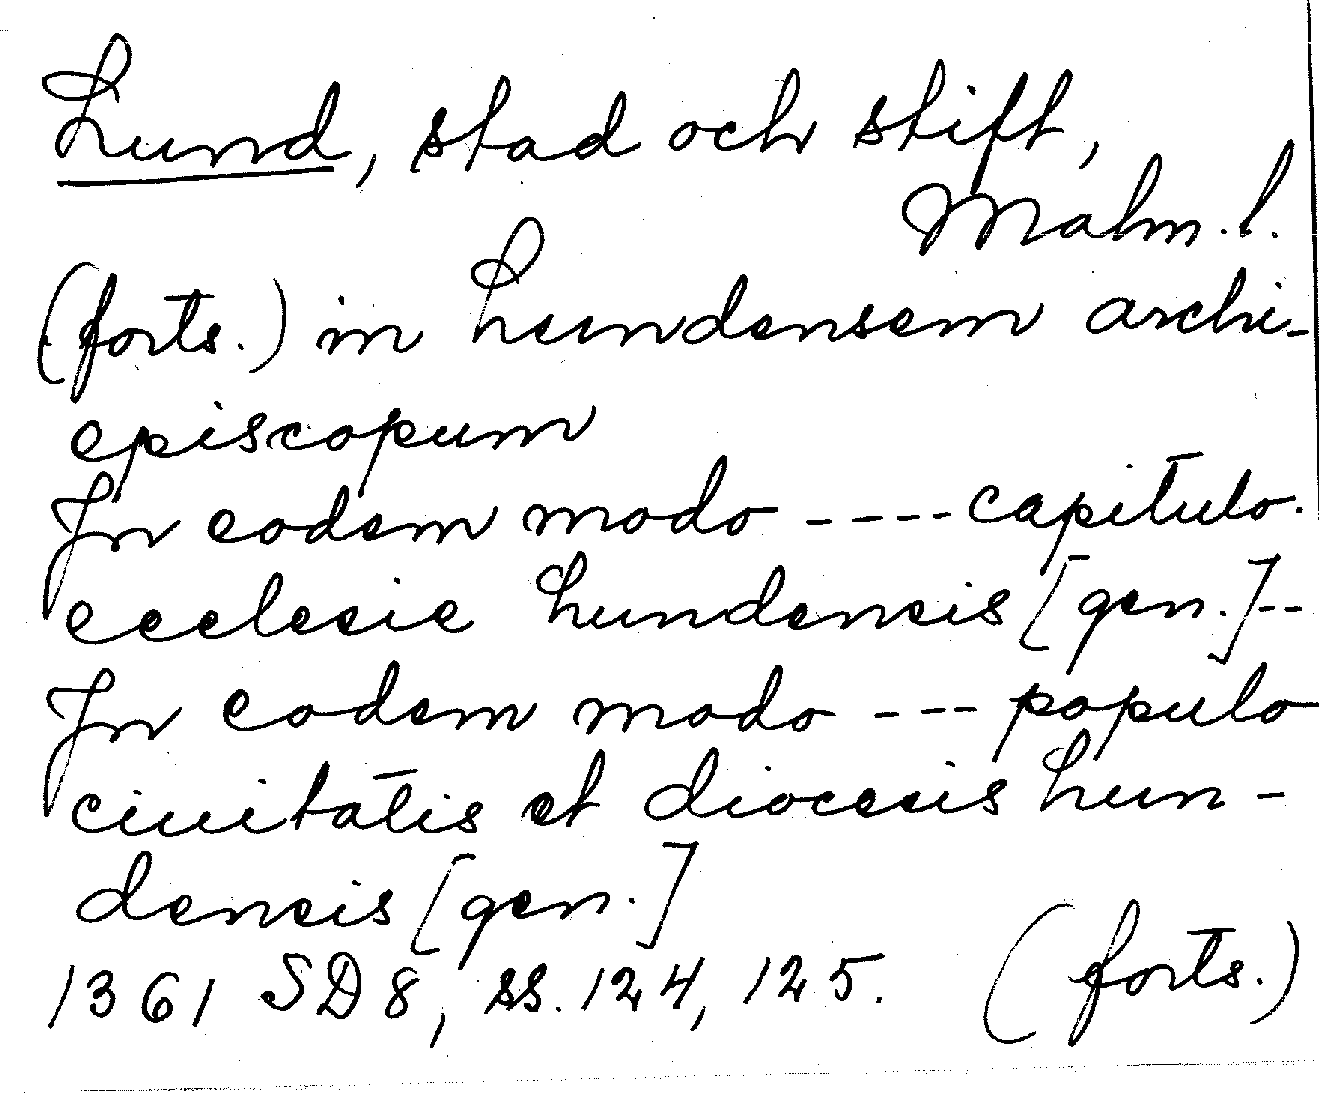 Lund, stad och stift,
Malm. l.
(forts.) in Lundensem archi-
episcopum
In eodem modo ---- capitulo.
ecclesie Lundensis [gen.]--
In eodem modo --- populo
ciuitatis et diocesis Lun-
densis [gen.]
1361 SD 8, ss. 124, 125. (forts.)